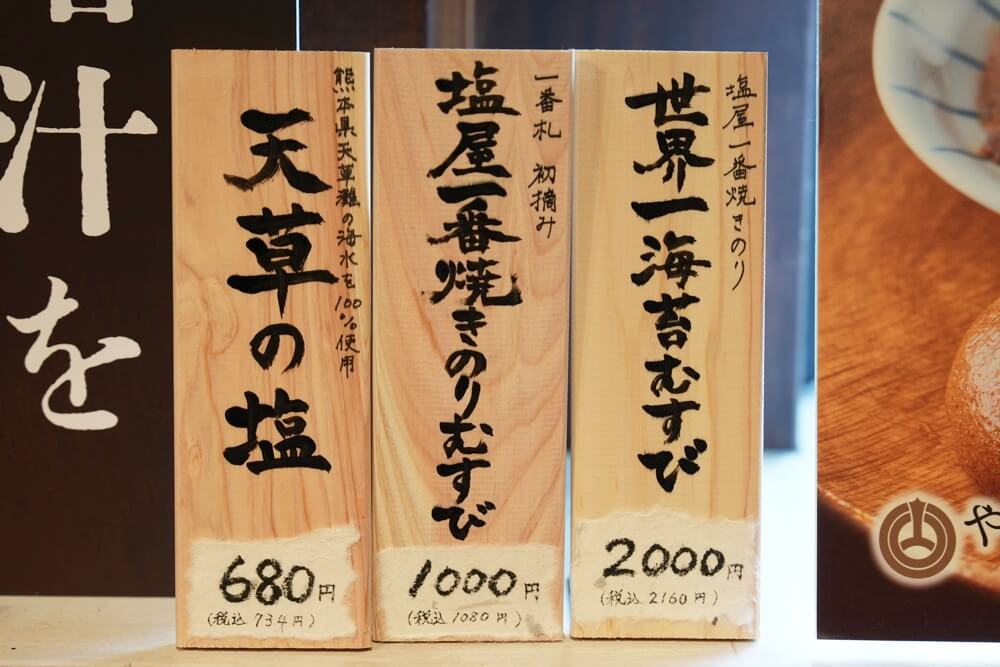 汁を
熊本県天草灘の海水を100%使用
天草の塩
680円
(税込734円)
一番札 初摘み
塩屋一番焼きのりむすび
1000円
(税込1080円)
塩屋一番焼きのり
世界一海苔むすび
2000円
(税込2160円)
や